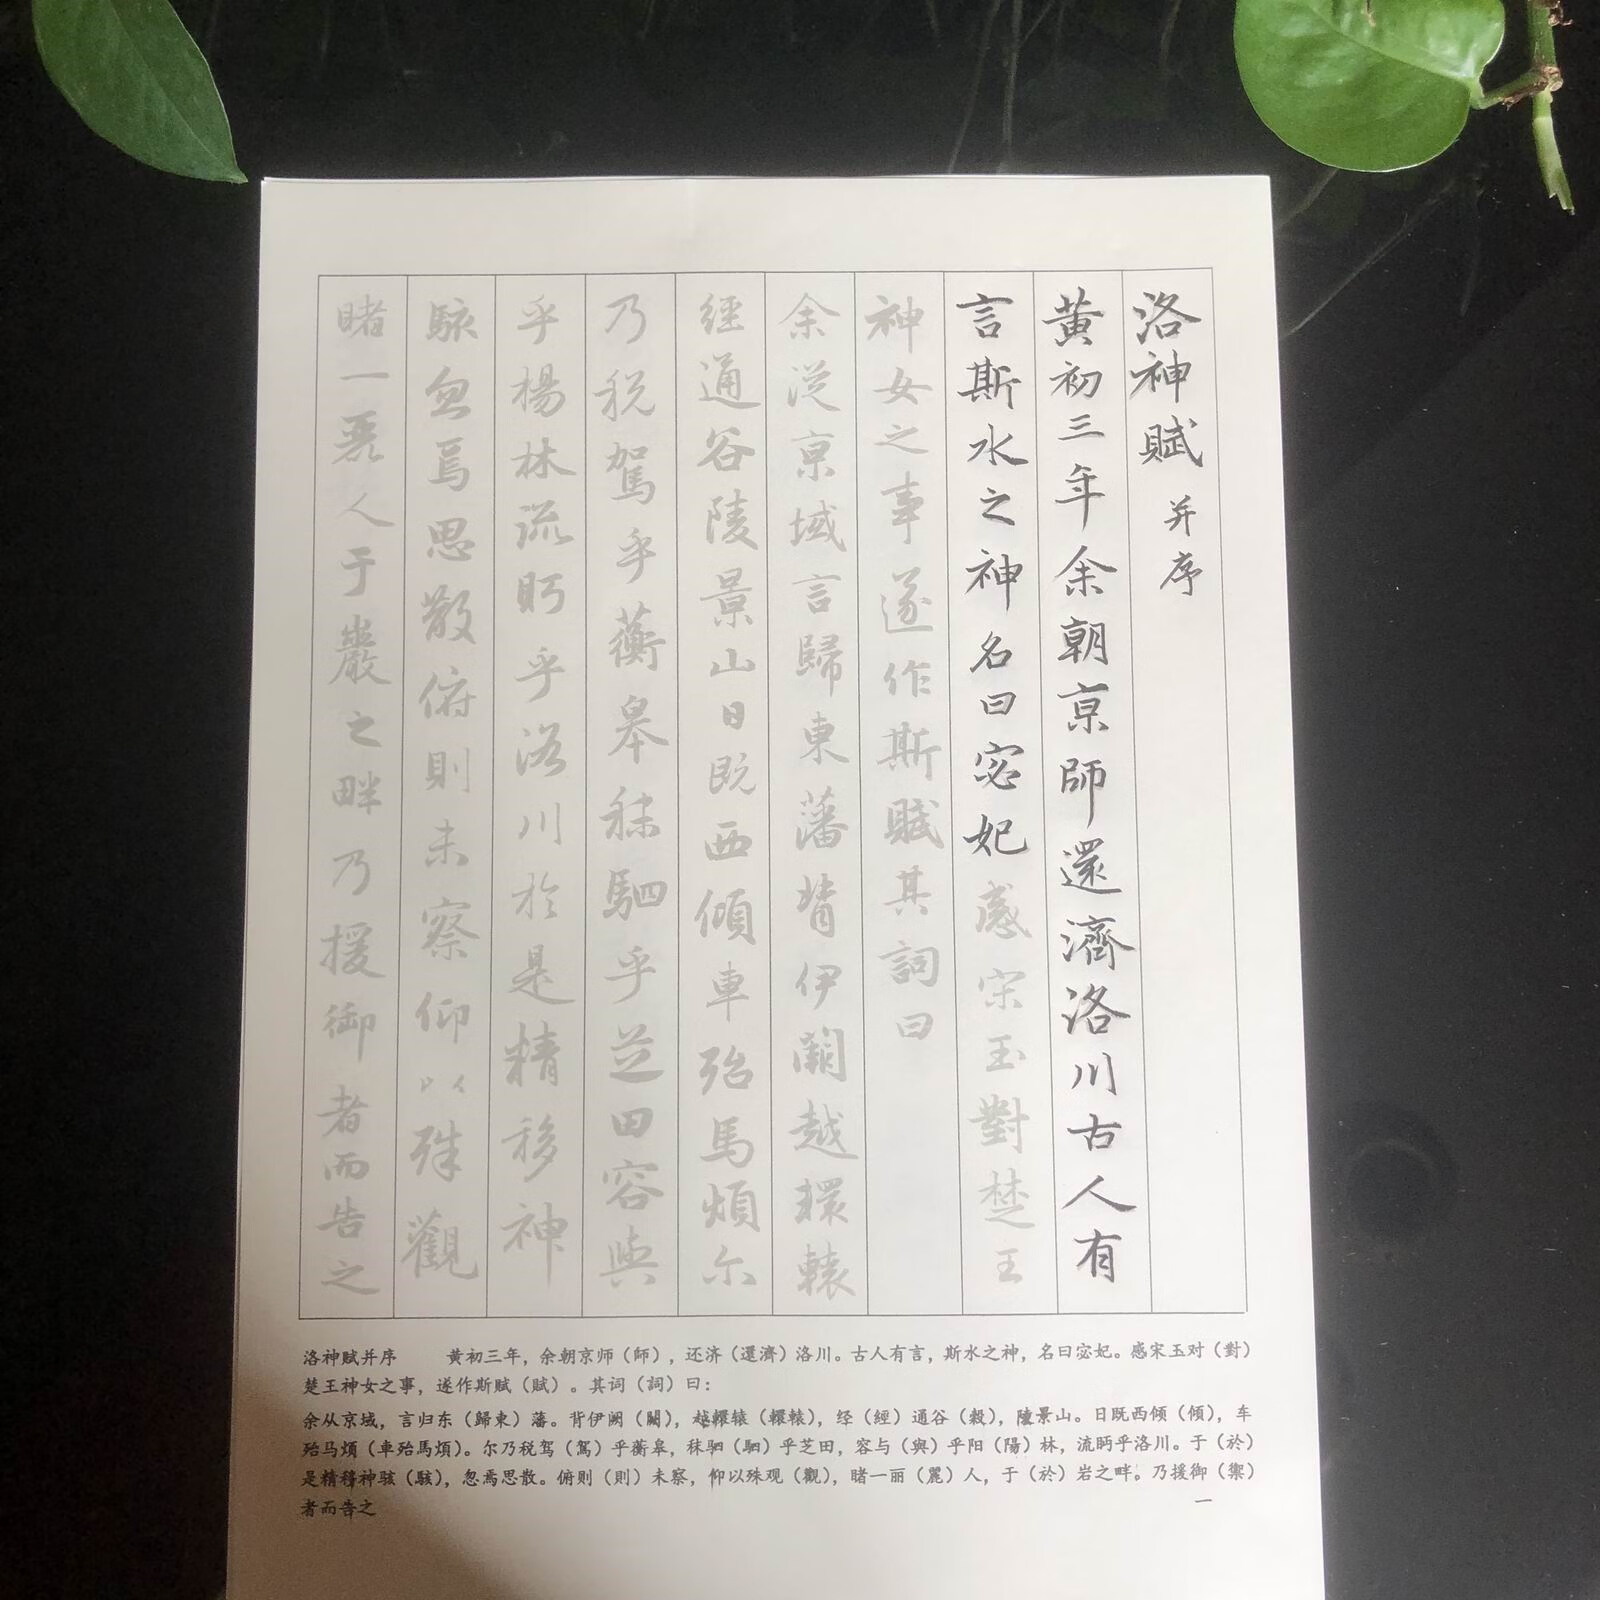 洛神賦 并序
黄初三年余朝京師還濟洛川古人有
言斯水之神名曰宓妃感宋玉對楚王
神女之事遂作斯賦其詞曰
余從京域言歸東藩背伊闕越轘轅
經通谷陵景山日既西傾車殆馬煩尓
乃税駕乎蘅皋秣駟乎芝田容與
乎楊林流眄乎洛川於是精移神
駭忽焉思散俯則未察仰以殊觀
睹一麗人于巖之畔乃援御者而告之
洛神赋并序 黄初三年，余朝京师（師），还济（還濟）洛川。古人有言，斯水之神，名曰宓妃。感宋玉对（對）
楚王神女之事，遂作斯赋（賦）。其词（詞）曰：
余从京域，言归东（歸東）藩。背伊阙（闕），越轘辕（轘轅），经（經）通谷（穀），陵景山。日既西倾（傾），车
殆马烦（車殆馬煩）。尔乃税驾（駕）乎蘅皋，秣驷（駟）乎芝田，容与（與）乎阳（陽）林，流眄乎洛川。于（於）
是精移神骇（駭），忽焉思散。俯则（則）未察，仰以殊观（觀），睹一丽（麗）人，于（於）岩之畔。乃援御（禦）
者而告之
一